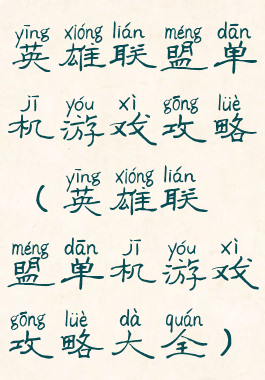 yīng xióng lián méng dān
英雄联盟单
jī yóu xì gōng lüè
机游戏攻略
yīng xióng lián
(英雄联
méng dān jī yóu xì
盟单机游戏
gōng lüè dà quán
攻略大全)